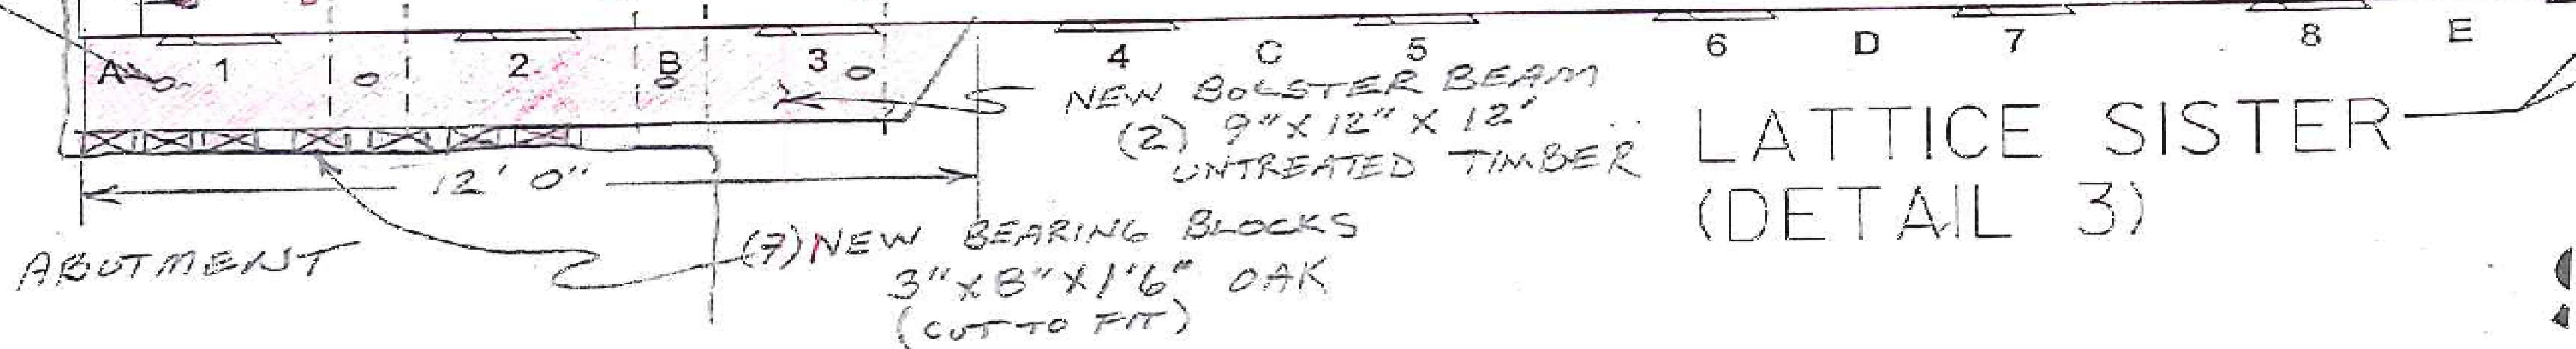 A 1 2 B 3 4 C 5 6 D 7 8 E
NEW BOLSTER BEAM
(2) 9" X 12" X 12'
UNTREATED TIMBER
LATTICE SISTER
(DETAIL 3)
12' 0"
ABUTMENT
(7) NEW BEARING BLOCKS
3" X 8" X 1'6" OAK
(CUT TO FIT)